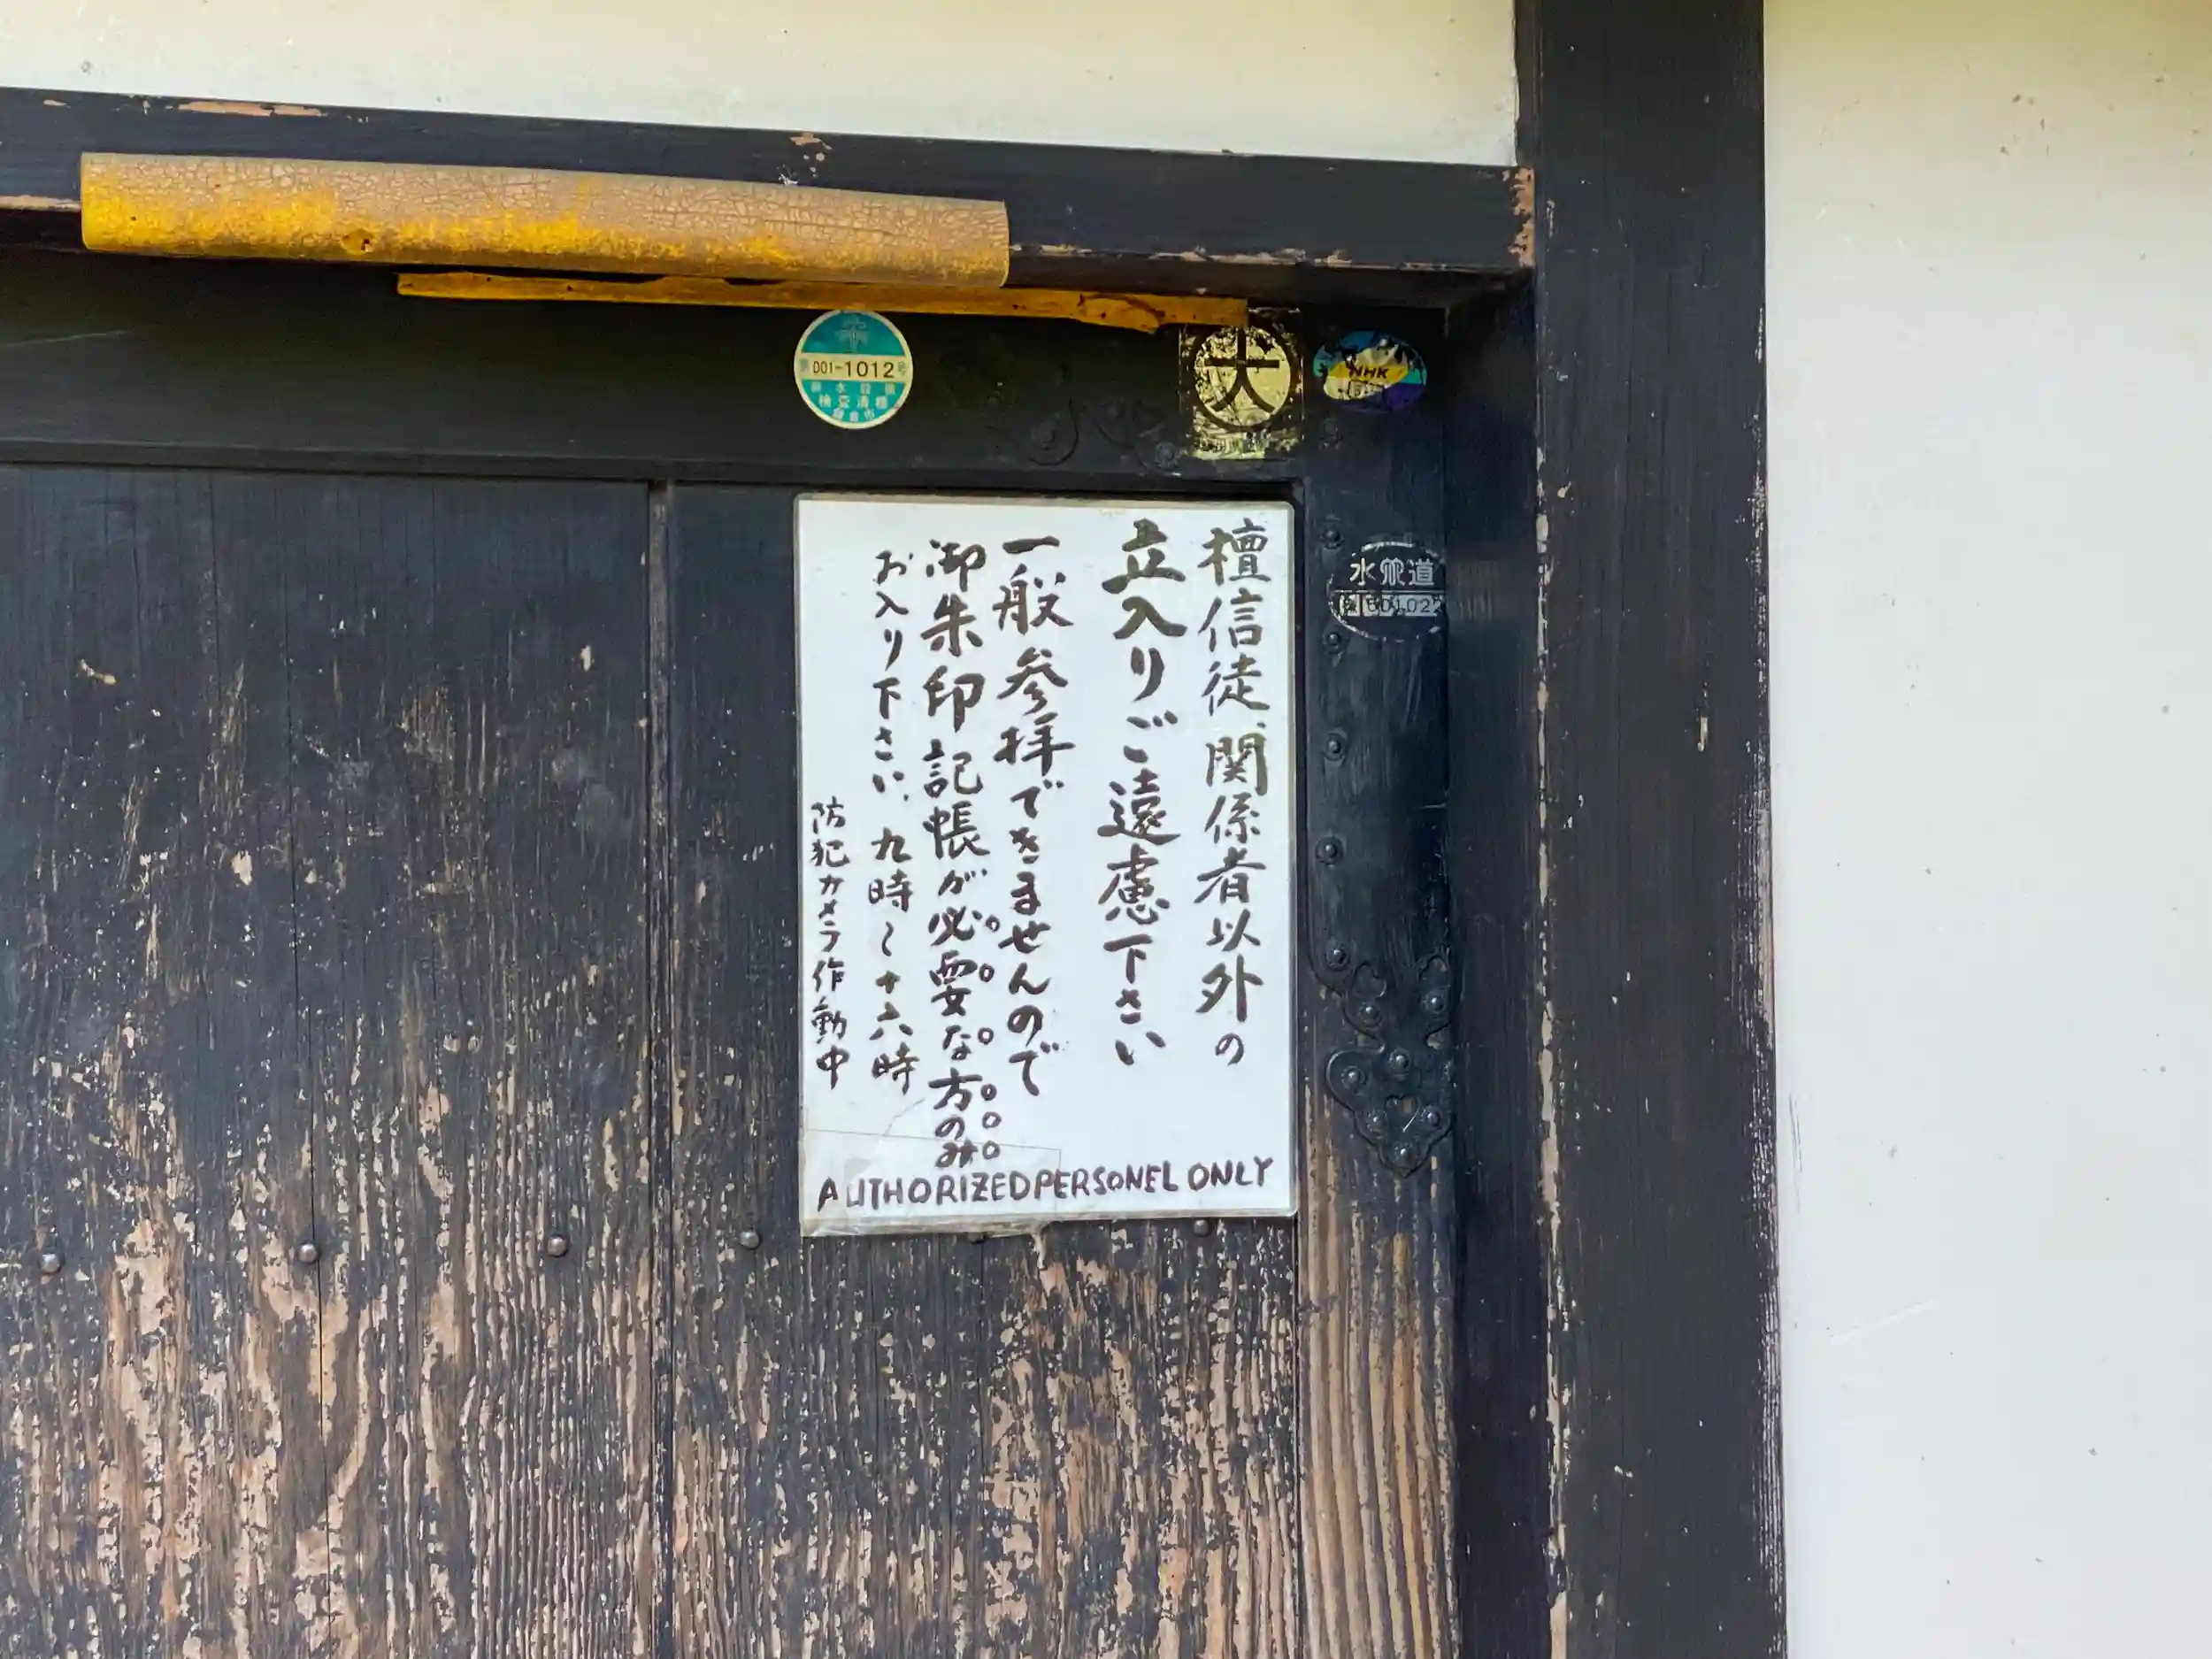 檀信徒、関係者以外の
立入りご遠慮下さい
一般参拝できませんので
御朱印記帳が必要な方のみ
お入り下さい、九時〜十六時
防犯カメラ作動中
AUTHORIZED PERSONEL ONLY
D01-1012号
検査済
犬
NHK
水道